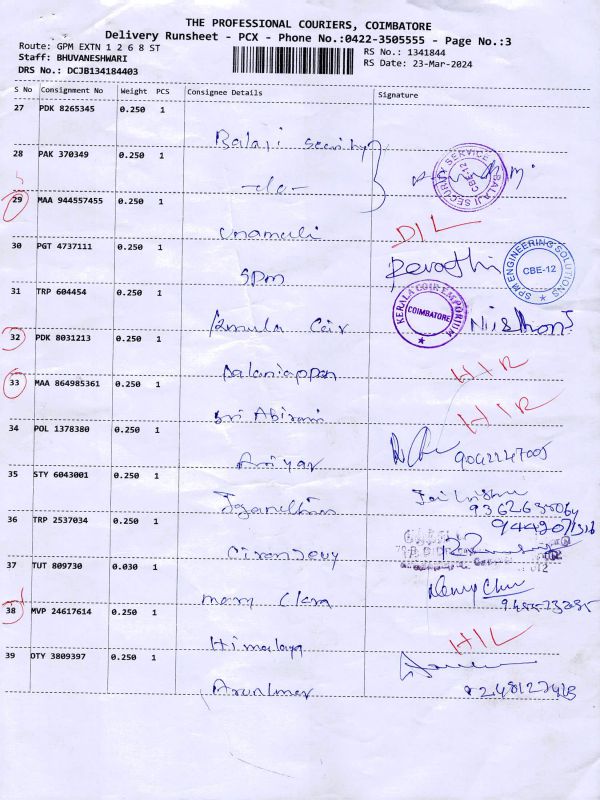 THE PROFESSIONAL COURIERS, COIMBATORE
Delivery Runsheet - PCX - Phone No.:0422-3505555 - Page No.:3
Route: GPM EXTN 1 2 6 8 ST
Staff: BHUVANESHWARI
DRS No.: DCJB134184403
RS No.: 1341844
RS Date: 23-Mar-2024
S No Consignment No Weight PCS Consignee Details Signature
27 PDK 8265345 0.250 1
Balaji Security
28 PAK 370349 0.250 1
-do-
BALAJI SECURITY SERVICE CBE-12
29 MAA 944557455 0.250 1
D/L
30 PGT 4737111 0.250 1
SPM Revathi
SPM ENGINEERING SOLUTIONS CBE-12
31 TRP 604454 0.250 1
Coir
KERALA COIR EMPORIUM COIMBATORE
32 PDK 8031213 0.250 1
Palaniappan H/R
33 MAA 864985361 0.250 1
Sri Abirami H/R
34 POL 1378380 0.250 1
9042247005
35 STY 6043001 0.250 1
36 TRP 2537034 0.250 1
37 TUT 809730 0.030 1
Mary Clara
38 MVP 24617614 0.250 1
Himalaya H/L
39 OTY 3809397 0.250 1